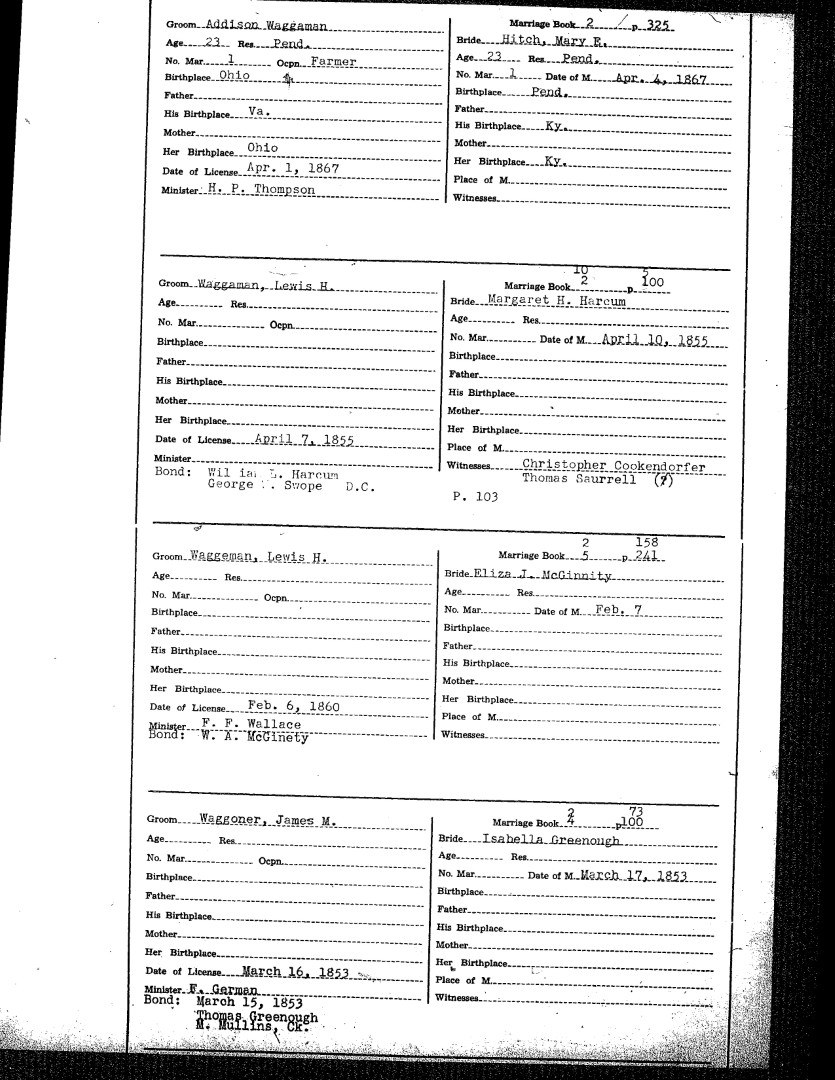 Groom Addison Waggaman
Age 23 Res. Pend.
No. Mar. 1 Ocpn. Farmer
Birthplace Ohio
Father
His Birthplace Va.
Mother
Her Birthplace Ohio
Date of License Apr. 1, 1867
Minister H. P. Thompson
Marriage Book 2 p. 325
Bride Hitch, Mary E.
Age 23 Res. Pend.
No. Mar. 1 Date of M. Apr. 4, 1867
Birthplace Pend.
Father
His Birthplace Ky.
Mother
Her Birthplace Ky.
Place of M.
Witnesses
Groom Waggaman, Lewis H.
Age Res.
No. Mar. Ocpn.
Birthplace
Father
His Birthplace
Mother
Her Birthplace
Date of License April 7, 1855
Minister
Bond: Wil ia L. Harcum
George . Swope D.C.
10 5
Marriage Book 2 p. 100
Bride Margaret H. Harcum
Age Res.
No. Mar. Date of M. April 10, 1855
Birthplace
Father
His Birthplace
Mother
Her Birthplace
Place of M.
Witnesses Christopher Cookendorfer
Thomas Saurrell (?)
P. 103
Groom Waggeman, Lewis H.
Age Res.
No. Mar. Ocpn.
Birthplace
Father
His Birthplace
Mother
Her Birthplace
Date of License Feb. 6, 1860
Minister F. F. Wallace
Bond: W. A. McGinety
2 158
Marriage Book 5 p. 241
Bride Eliza J. McGinnity
Age Res.
No. Mar. Date of M. Feb. 7
Birthplace
Father
His Birthplace
Mother
Her Birthplace
Place of M.
Witnesses
Groom Waggoner, James M.
Age Res.
No. Mar. Ocpn.
Birthplace
Father
His Birthplace
Mother
Her Birthplace
Date of License March 16, 1853
Minister F. German
Bond: March 15, 1853
Thomas Greenough
M. Mullins, Ck.
2 73
Marriage Book 4 p100
Bride Isabella Greenough
Age Res.
No. Mar. Date of M. March 17, 1853
Birthplace
Father
His Birthplace
Mother
Her Birthplace
Place of M.
Witnesses